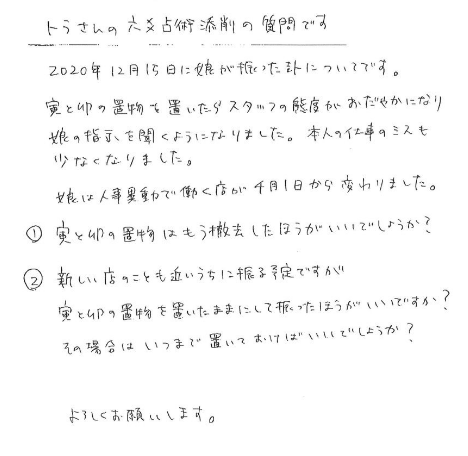 トラさんの六爻占術添削の質問です
2020年12月15日に娘が振った卦についてです。
寅と卯の置物を置いたらスタッフの態度がおだやかになり
娘の指示を聞くようになりました。本人の仕事のミスも
少なくなりました。
娘は人事異動で働く店が4月1日から変わりました。
① 寅と卯の置物はもう撤去したほうがいいでしょうか?
② 新しい店のことも近いうちに振る予定ですが
寅と卯の置物を置いたままにして振ったほうがいいですか?
その場合はいつまで置いておけばいいでしょうか?
よろしくお願いします。